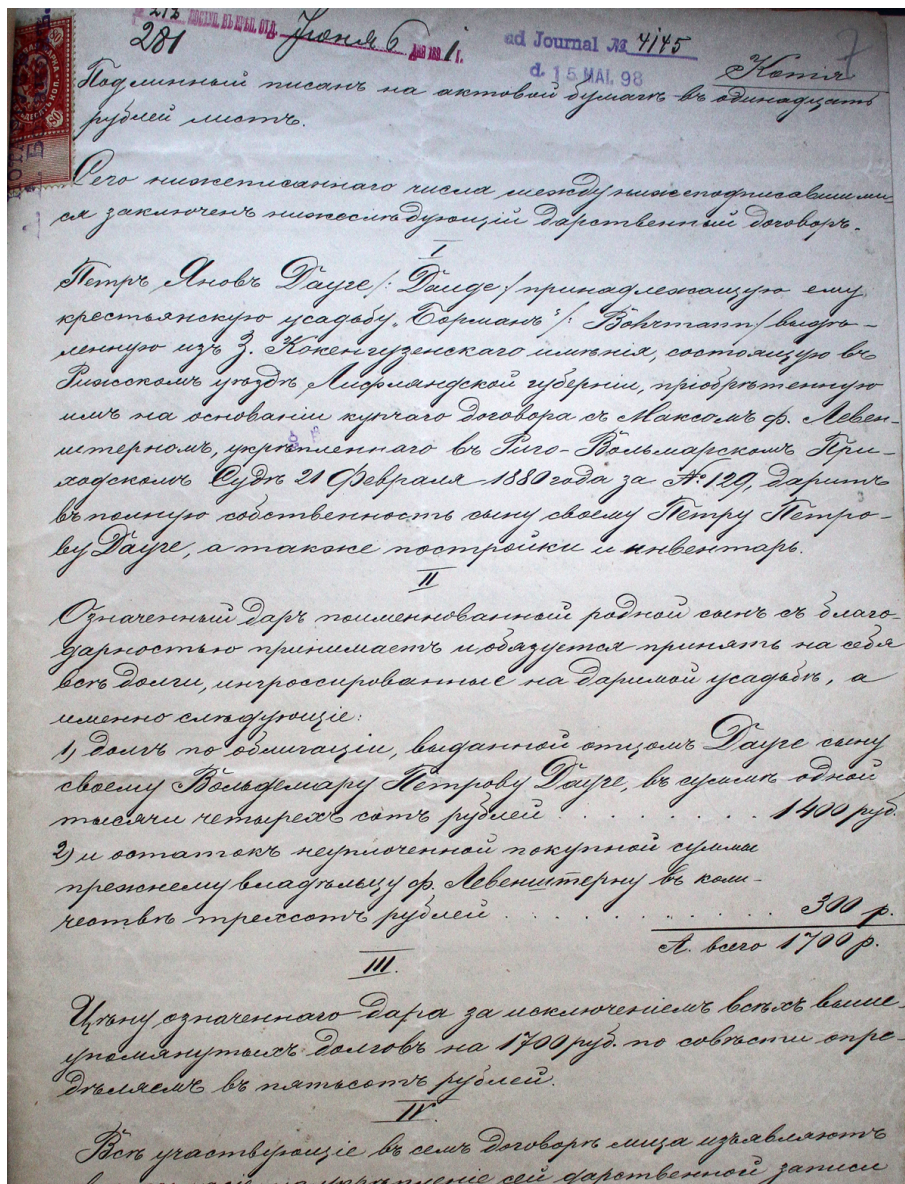 ПОСТУП. ВЪ КРѢП. ОТД. Іюня 6 дня 189 г.
281
ad Journal № 4145
d. 15 MAI. 98
Копія
Подлинный писанъ на актовой бумагѣ въ одинадцать
рублей листъ.
Сего нижеписаннаго числа между нижеподписавшими-
ся заключенъ нижеслѣдующій дарственный договоръ.
I
Петръ Яновъ Дауге /: Dauge :/ принадлежащую ему
крестьянскую усадьбу „Борманъ“ /: Bohrmann / выдѣ-
ленную изъ З. Кокенгузенскаго имѣнія, состоящую въ
Рижскомъ уѣздѣ Лифляндской губерніи, пріобрѣтенную
имъ на основаніи купчаго договора съ Максомъ ф. Левен-
штерномъ, укрѣпленнаго въ Риго-Вольмарскомъ При-
ходскомъ Судѣ 21 Февраля 1880 года за № 129, даритъ
въ полную собственность сыну своему Петру Петро-
ву Дауге, а также постройки и инвентарь.
II
Означенный даръ поименнованный родной сынъ съ благо-
дарностью принимаетъ и обязуется принять на себя
всѣ долги, ингроссированные на даримой усадьбѣ, а
именно слѣдующіе:
1) долгъ по облигаціи, выданной отцомъ Дауге сыну
своему Вольдемару Петрову Дауге, въ суммѣ одной
тысячи четырехъ сотъ рублей . . . . . . . . 1400 руб.
2) и остатокъ неуплоченной покупной суммы
прежнему владѣльцу ф. Левенштерну въ коли-
чествѣ трехсотъ рублей . . . . . . . . . . . . 300 р.
А всего 1700 р.
III.
Цѣну означеннаго дара за исключеніемъ всѣхъ выше-
упомянутыхъ долговъ на 1700 руб. по совѣсти опре-
дѣляемъ въ пятьсотъ рублей.
IV.
Всѣ участвующіе въ семъ договорѣ лица изъявляютъ
укрѣпленіе сей дарственной записи